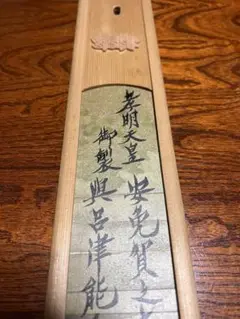 孝明天皇
御製
安免賀之
與呂津能